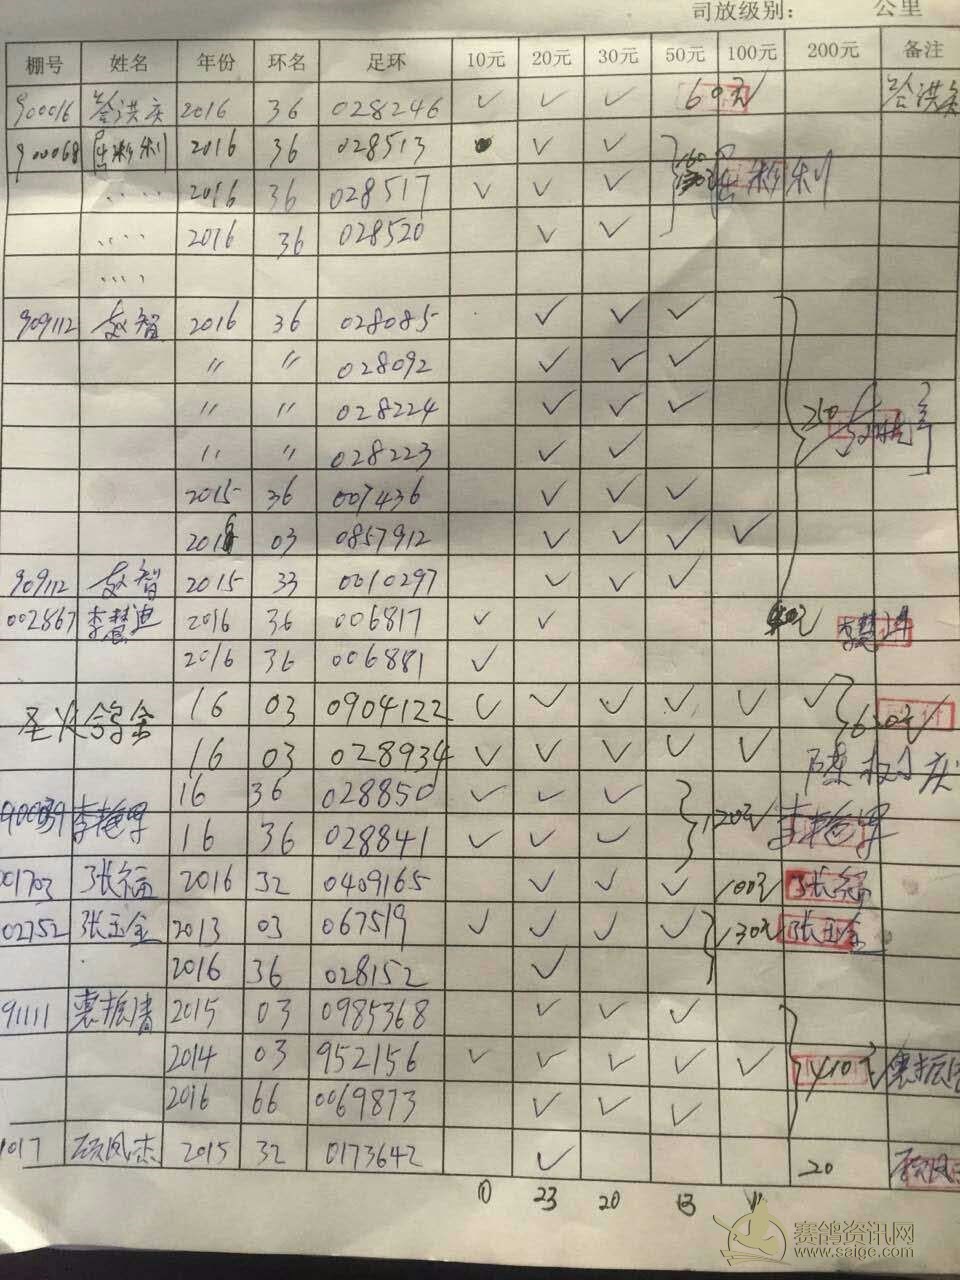 司放级别: 公里
棚号 姓名 年份 环名 足环 10元 20元 30元 50元 100元 200元 备注
900016 洪庆 2016 36 028246 ✓ ✓ ✓ 60元 洪庆
900068 2016 36 028513 ✓ ✓
〃 2016 36 028517 ✓ ✓ ✓
〃 2016 36 028520 ✓ ✓
〃
909112 智 2016 36 028085 ✓ ✓ ✓
〃 〃 028092 ✓ ✓ ✓
〃 〃 028224 ✓ ✓ ✓
〃 〃 028223 ✓ ✓
2015 36 007436 ✓ ✓ ✓
2016 03 0857912 ✓ ✓ ✓ ✓
909112 智 2015 33 0010297 ✓ ✓ ✓
002867 李慧迪 2016 36 006817 ✓ ✓
2016 36 006881 ✓
圣火鸽舍 16 03 0904122 ✓ ✓ ✓ ✓ ✓ ✓
16 03 028934 ✓ ✓ ✓ ✓ ✓
16 36 028850 ✓ ✓ ✓
16 36 028841 ✓ ✓ ✓ 120元
01703 张福 2016 32 0409165 ✓ ✓ ✓ 100元 张福
02752 张玉金 2013 03 067519 ✓ ✓ ✓ ✓ 130元 张玉金
2016 36 028152 ✓
91111 振清 2015 03 0985368 ✓ ✓ ✓
2014 03 952156 ✓ ✓ ✓ ✓ ✓ 410元
2016 66 0069873 ✓ ✓ ✓
1017 顾凤杰 2015 32 0173642 ✓ 20
23 20 13
赛鸽资讯网
www.saige.com